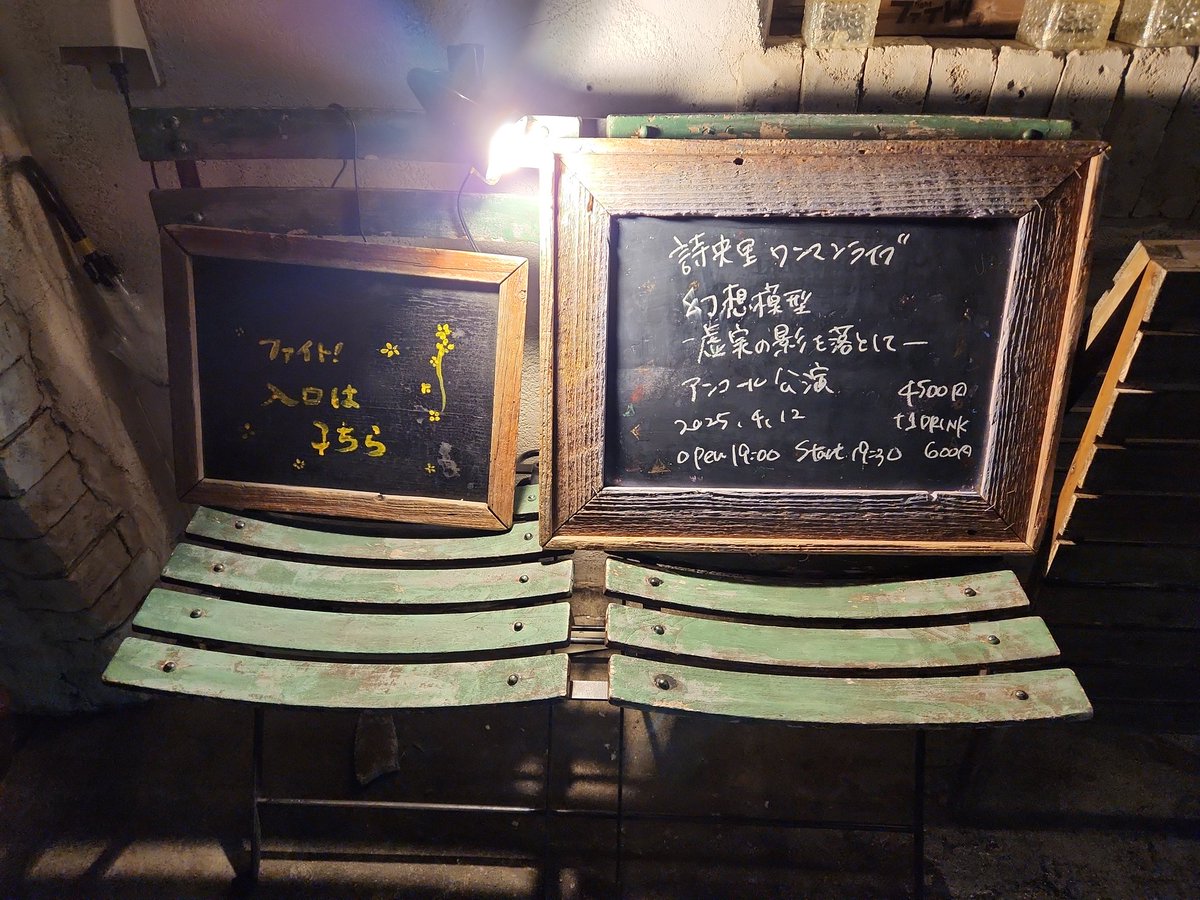 ファイト!
入口は
こちら
詩央里 ワンマンライブ
幻想模型
-虚実の影を落として-
アンコール公演
2025.4.12
open 19:00 Start 19:30
4500円
+1DRINK
600円
ファイト!